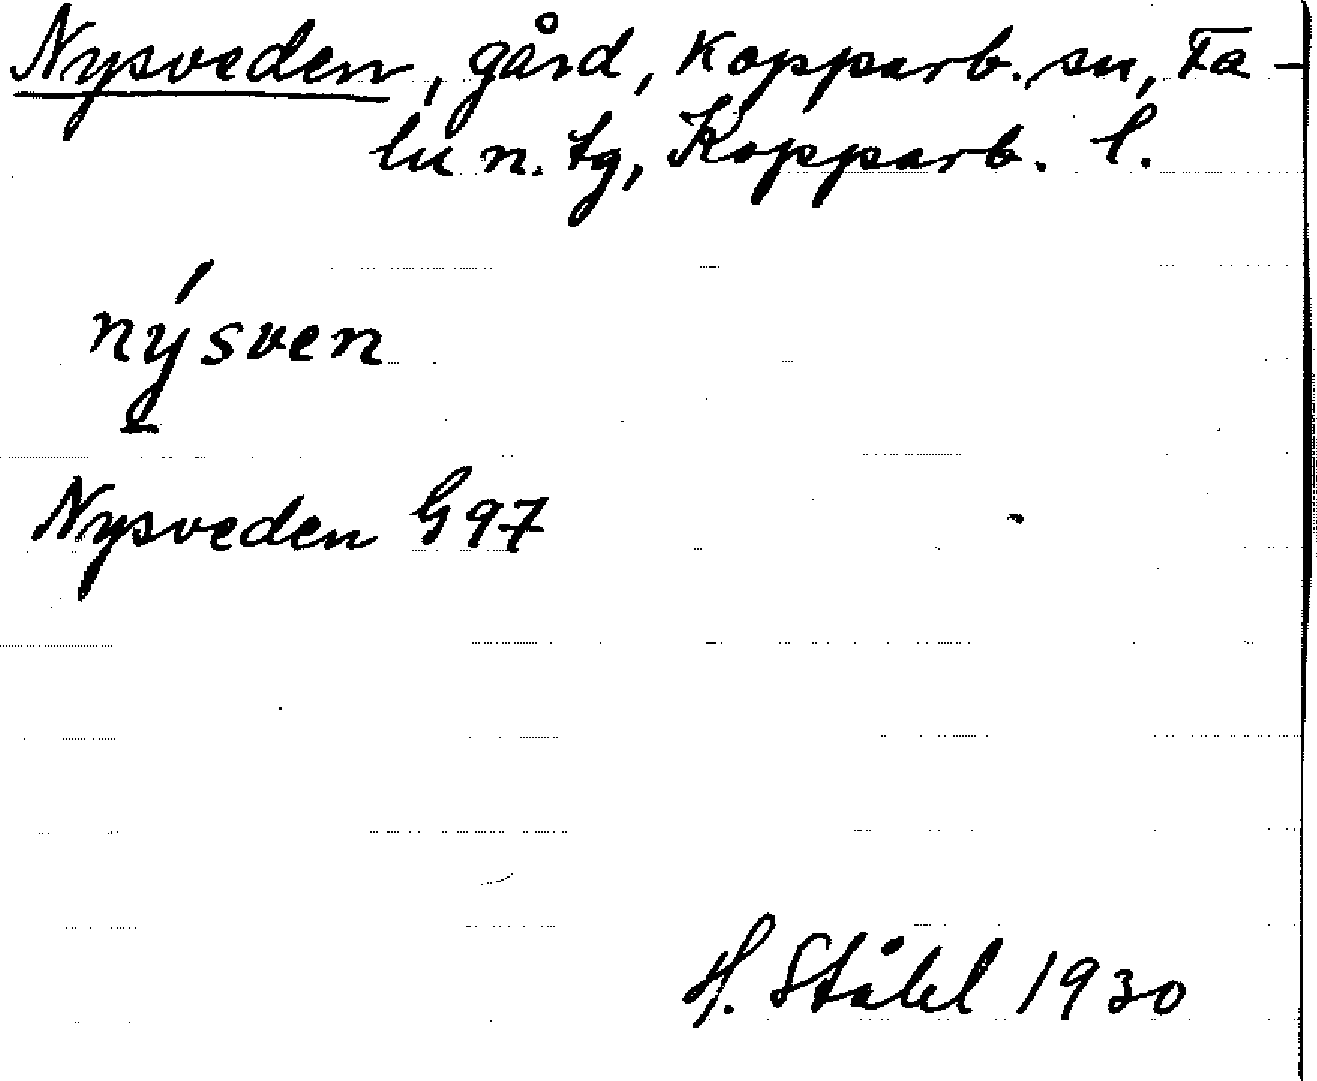 Nysveden, gård, Kopparb. sn, Fa-
lu n. tg, Kopparb. l.
nýsven
Nysveden G 97
H. Ståhl 1930